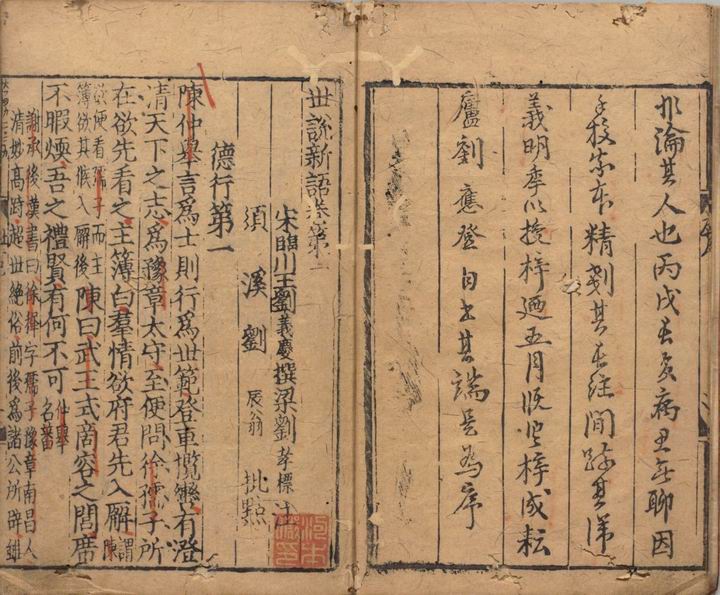 非論其人也丙戌長夏病思無聊因
手校家本精剗其長註間疏其滯
義明年以授梓迺五月既望梓成耘
廬劉應登自書其端是為序
世說新語卷第一
宋臨川王劉義慶撰梁劉孝標注
須溪劉辰翁批點
德行第一
陳仲舉言爲士則行爲世範登車攬轡有澄
清天下之志爲豫章太守至便問徐孺子所
在欲先看之主簿白羣情欲府君先入廨謂陳
欲便看孺子而主簿欲其候入廨後陳曰武王式商容之閭席
不暇煖吾之禮賢有何不可仲舉名蕃
謝承後漢書曰徐穉字孺子豫章南昌人
清妙高跱超世絕俗前後爲諸公所辟雖